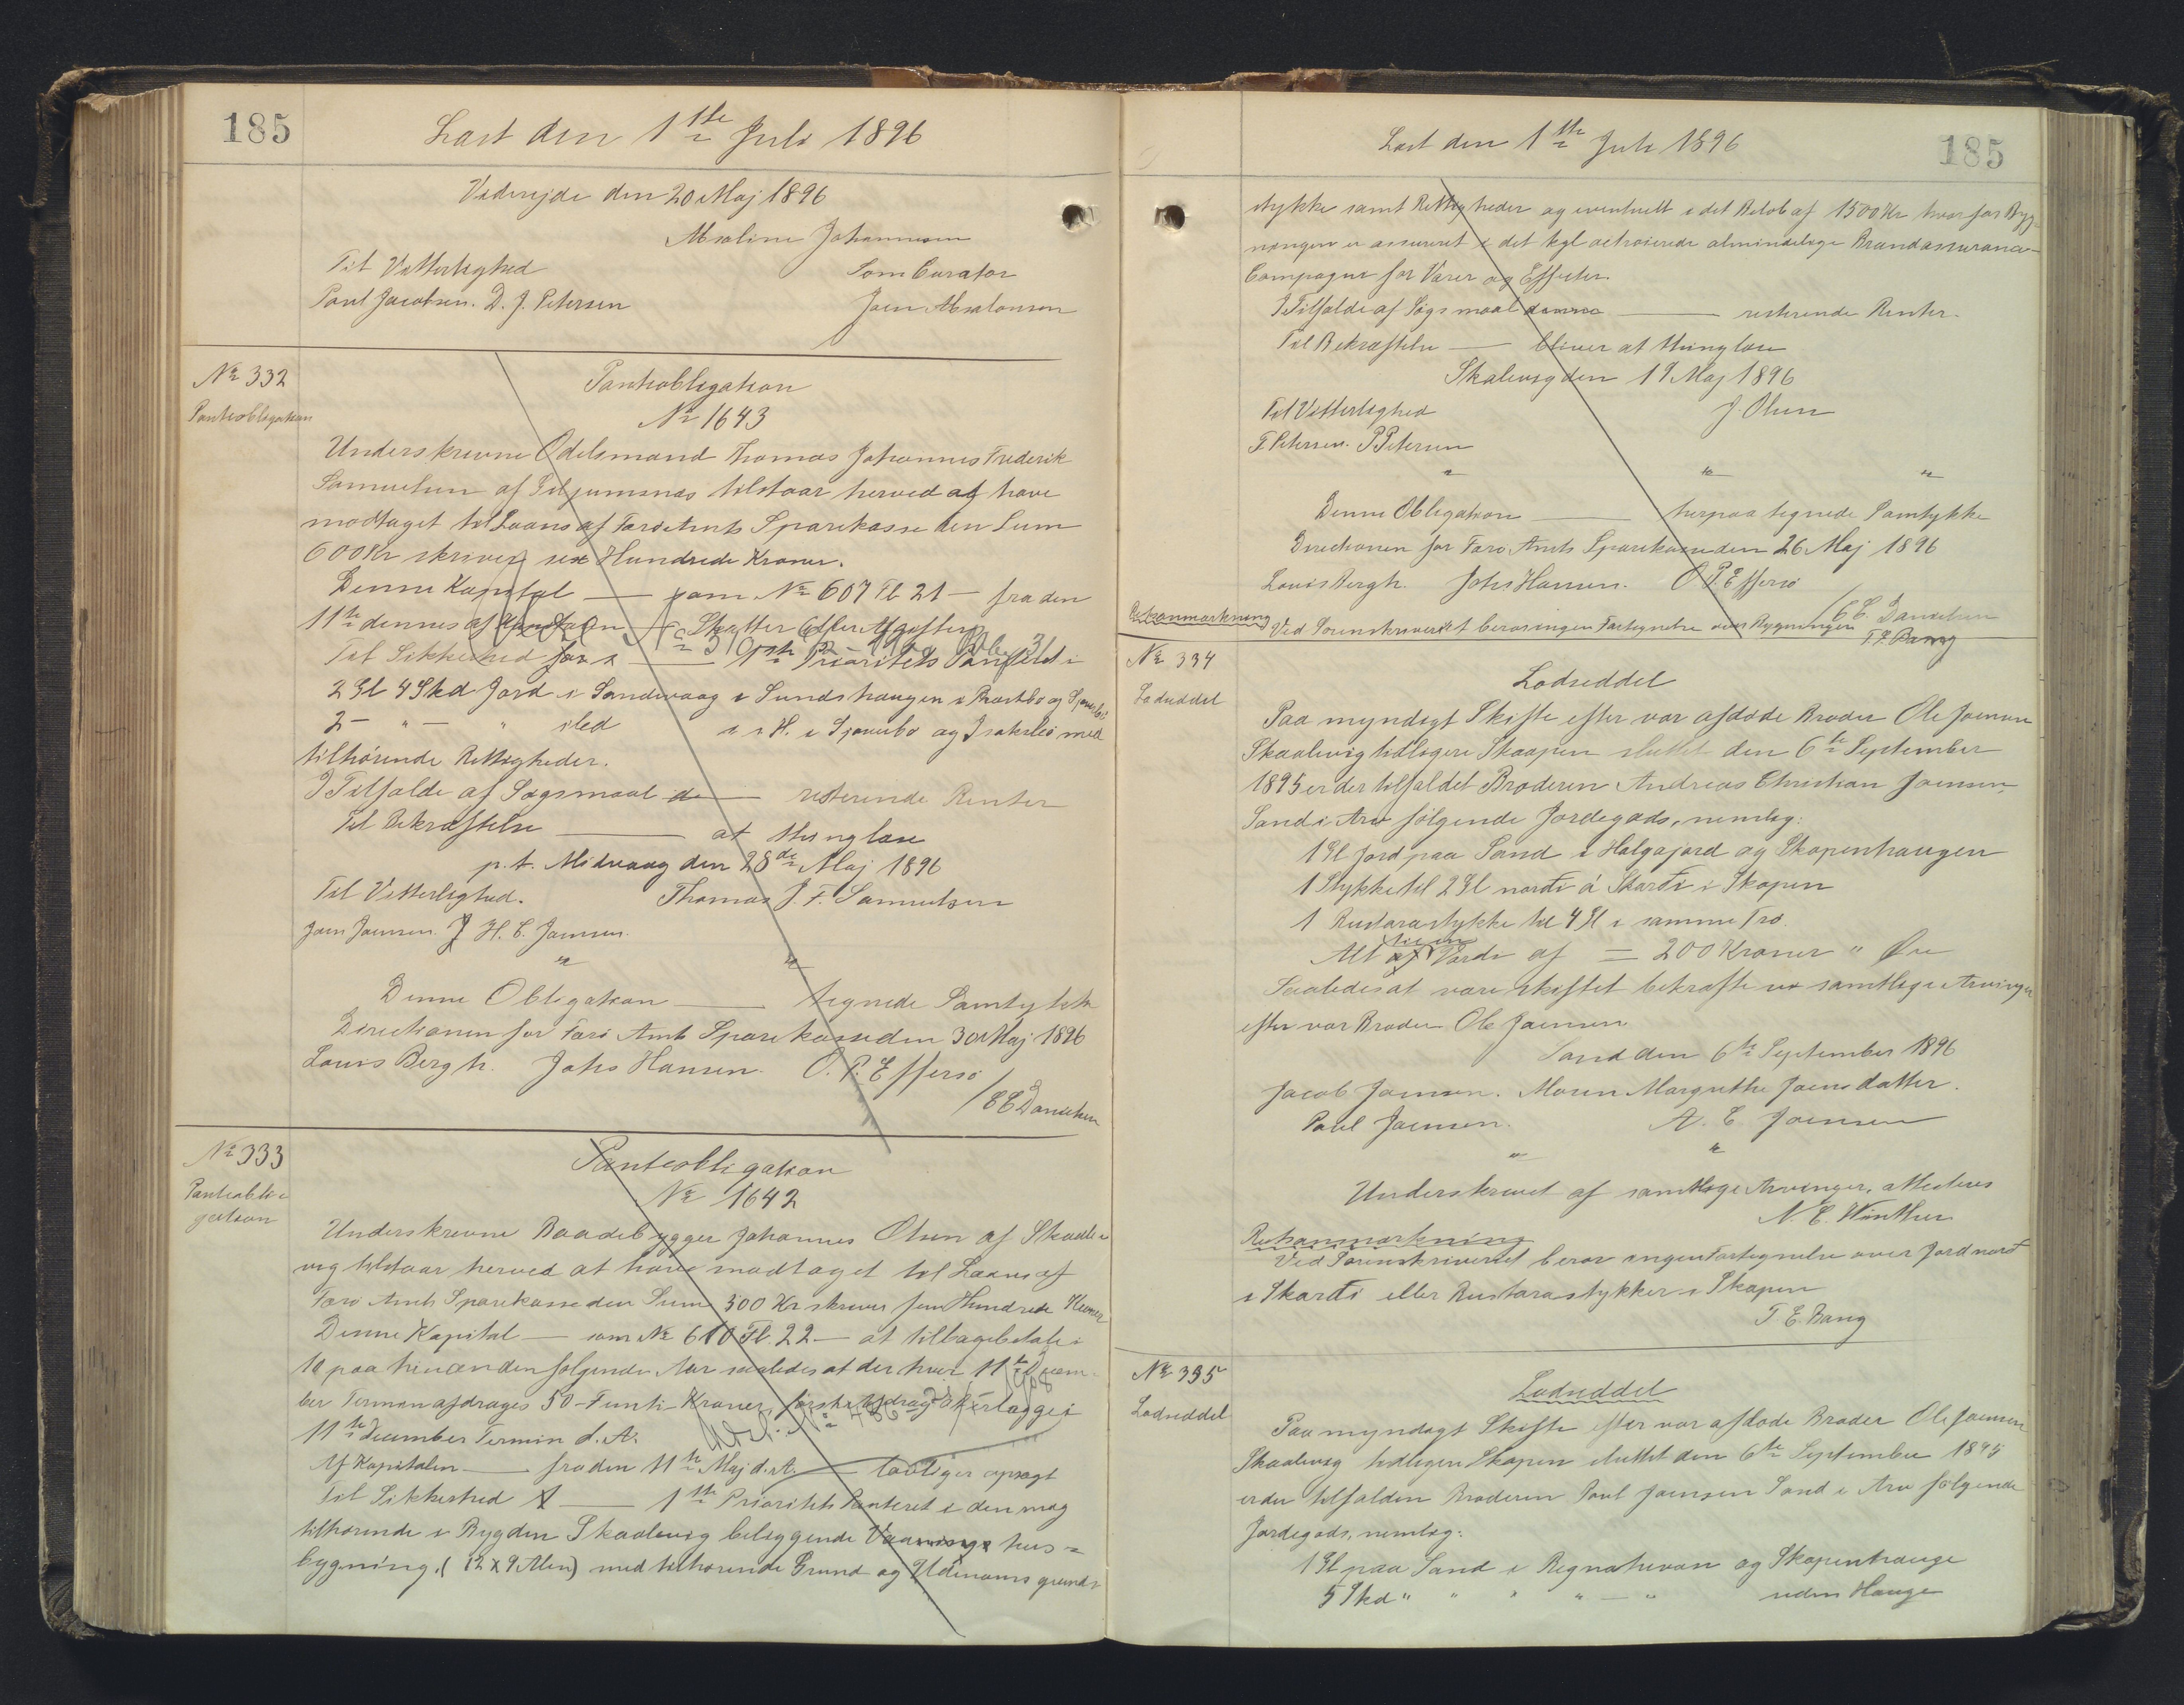 185
Læst den 1ste Juli 1896
Viderejde den 20 Maj 1896
Absoline Johannesen
Til Vitterlighed Som Curator
Poul Jacobsen. D. J. Petersen Joen Absalonsen
No 332
Pantobligation
Panteobligation
No 1643
Underskrevne Odelsmand Thomas Johannes Frederik
Samuelsen af tilstaar herved at have
modtaget til Laans af Færø Amts Sparekasse den Sum
600 Kr skriver sex Hundrede Kroner.
Denne Kapital — som No 607 Fl 21 — fra den
11te dennes af — Skatter eller Afgifter
Til Sikkerhed for — 1ste Prioritets Panteret i
2 Gl 4 Skd Jord i Sandevaag i Sundshaugen i
2 - " - " sted i s H. i og med
tilhörende Rettigheder.
I Tilfælde af Søgsmaal de — resterende Renter
Til Bekræftelse — at thinglæse
p.t. Midvaag den 28de Maj 1896
Til Vitterlighed. Thomas J. F. Samuelsen
Joen Joensen. J H. C. Joensen.
" "
Denne Obligation — tegnede Samtykke
Directionen for Færø Amts Sparekasse den 30 Maj 1896
Louis Bergh. Johs Hansen. O. P. Effersø
/ C C Danielsen
No 333
Panteobli-
gation
Panteobligation
No 1642
Underskrevne Baadebygger Johannes Olsen af Skaale-
vig tilstaar herved at have modtaget til Laans af
Færø Amts Sparekasse den Sum 500 Kr skriver fem Hundrede Kroner
Denne Kapital — som No 610 Fl. 22 — at tilbagebetale i
10 paa hinanden følgende Aar saaledes at der hver 11te Decem-
ber Termin afdrages 50 - Femti - Kroner, første Afdrag erlægges
11te December Termin d. A.
Af Kapitalen — fra den 11te Maj d. A. — lovligen opsagt
Til Sikkerhed — 1ste Prioritets Panteret i den mig
tilhørende i Bygden Skaalevig beliggende Vaanings hus-
bygning, (12 x 9 Alen) med tilhørende Grund og Udenoms grund-
Læst den 1ste Juli 1896
185
stykke samt Rettigheder og eventuelt i det Beløb af 1500 Kr hvorfor Byg-
ningen er assureret i det kgl octroierede almindelige Brandassurance-
Compagni for Varer og Effecter.
I Tilfælde af Søgsmaal — resterende Renter.
Til Bekræftelse — bliver at thinglæse
Skalevig den 19 Maj 1896
Til Vitterlighed J. Olsen
T. Petersen. P Petersen
" " "
Denne Obligation — herpaa tegnede Samtykke
Directionen for Færø Amts Sparekasse den 26 Maj 1896
Louis Bergh. Johs Hansen. O. P. Effersø
/ C C. Danielsen
Retsanmærkning Ved Sorenskriveriet beror ingen Fortegnelse over Bygninger
T. E. Bang
No 334
Lodseddel
Lodseddel
Paa myndigt Skifte efter vor afdøde Broder Ole Joensen
Skaalevig tidligere Skaapen sluttet den 6te September
1895 er der tilfaldet Broderen Andreas Christian Joensen,
Sand i Arv følgende Jordegods, nemlig:
1 Gl Jord paa Sand i Halgajord og Skopenhaugen
1 Stykke til 2 Gl norði á Skarði i Skopen
1 Rustarastykke til 4 Gl i samme Trø
Alt til en Værdi af = 200 Kroner " Øre
Saaledes at være skiftet bekræfte vi samtlige Arvinger
efter vor Broder Ole Joensen
Sand den 6te September 1896
Jacob Joensen. Maren Margrethe Joensdatter.
Poul Joensen. A. C Joensen
" "
Underskrevet af samtlige Arvinger, attesteres
N. C. Winther
Retsanmærkning
Ved Sorenskriveriet beror ingen Fortegnelse over Jord norð
i Skarði eller Rustarastykker i Skopen
T. E. Bang
No 335
Lodseddel
Lodseddel
Paa myndigt Skifte efter vor afdøde Broder Ole Joensen
Skaalevig tidligere Skopen sluttet den 6te September 1895
er der tilfalden Broderen Poul Joensen Sand i Arv følgende
Jordegods, nemlig:
1 Gl paa Sand i og Skopenhauge
5 Skd " " " " — " uden Hauge